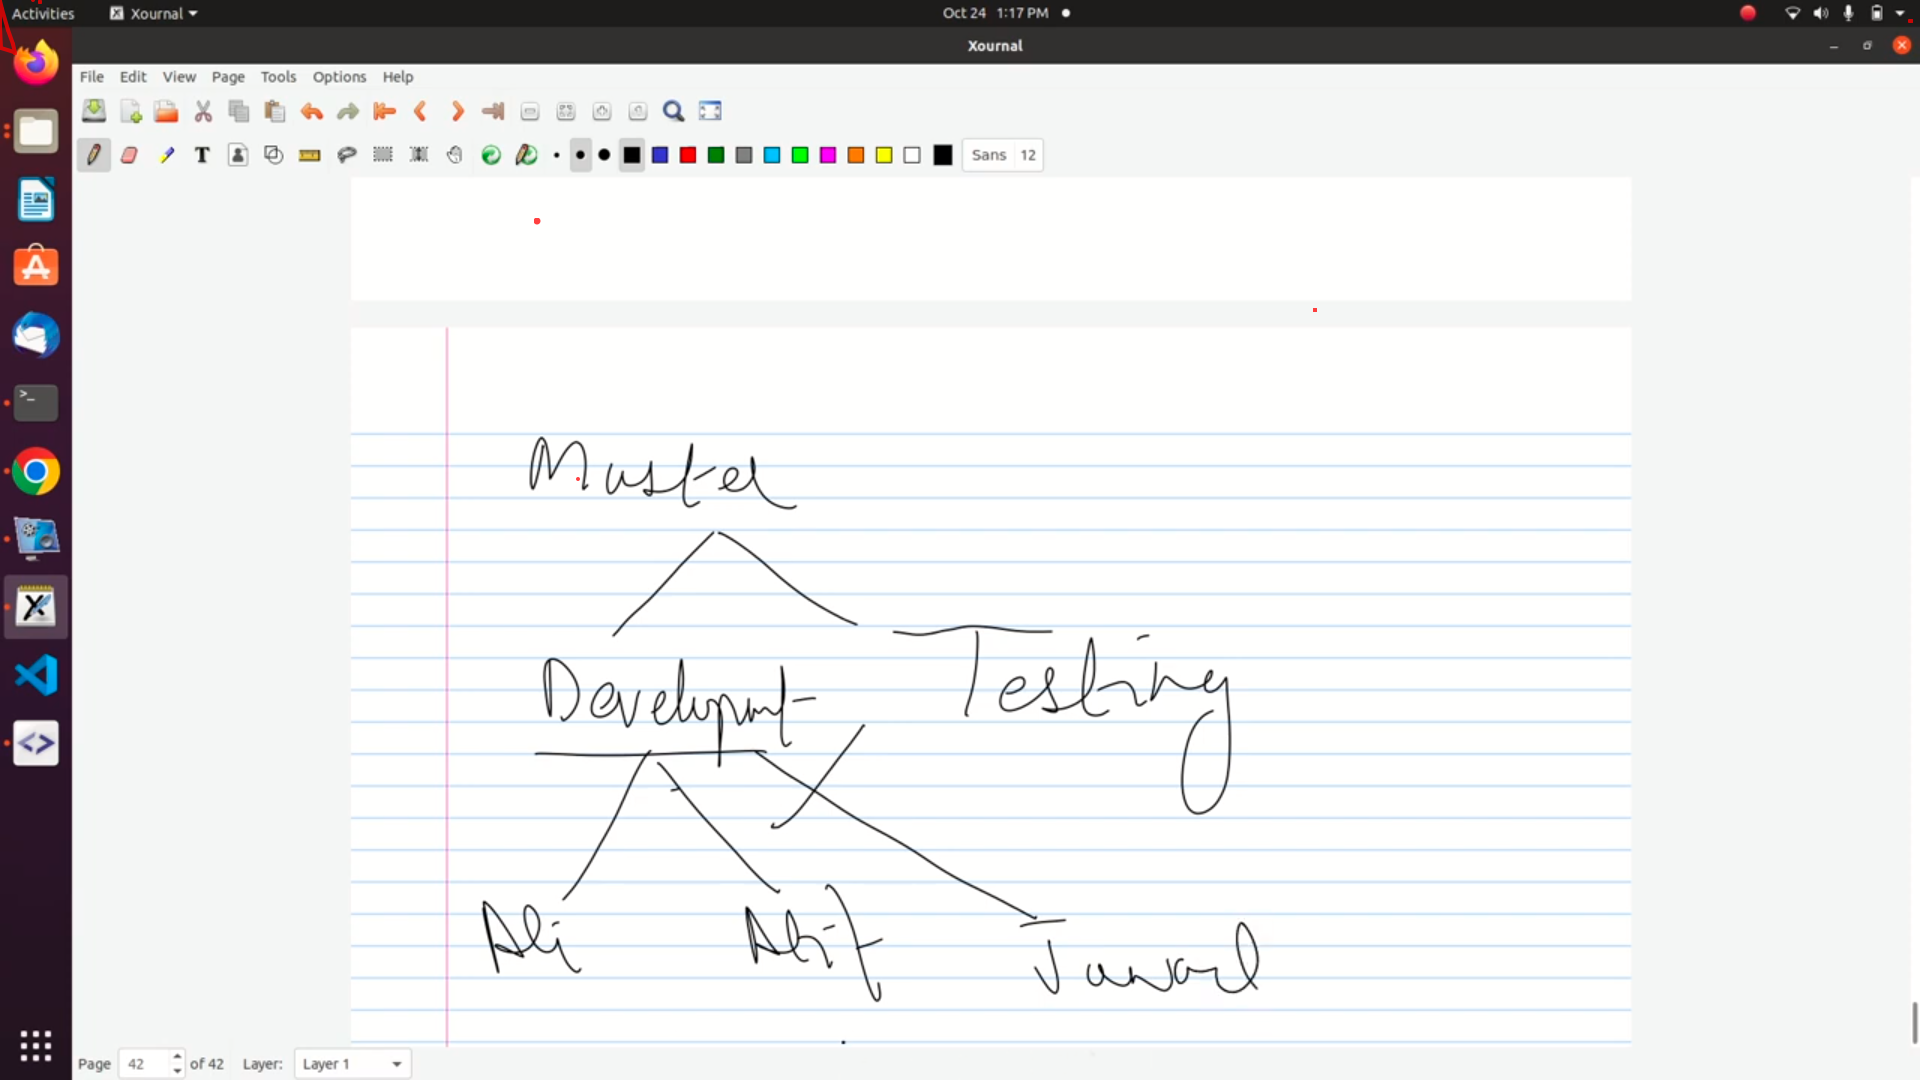 Activities Xournal Oct 24 1:17 PM
Xournal
File Edit View Page Tools Options Help
T Sans 12
Master
Developmt Testing
Ali Atif Jawad
Page 42 of 42 Layer: Layer 1